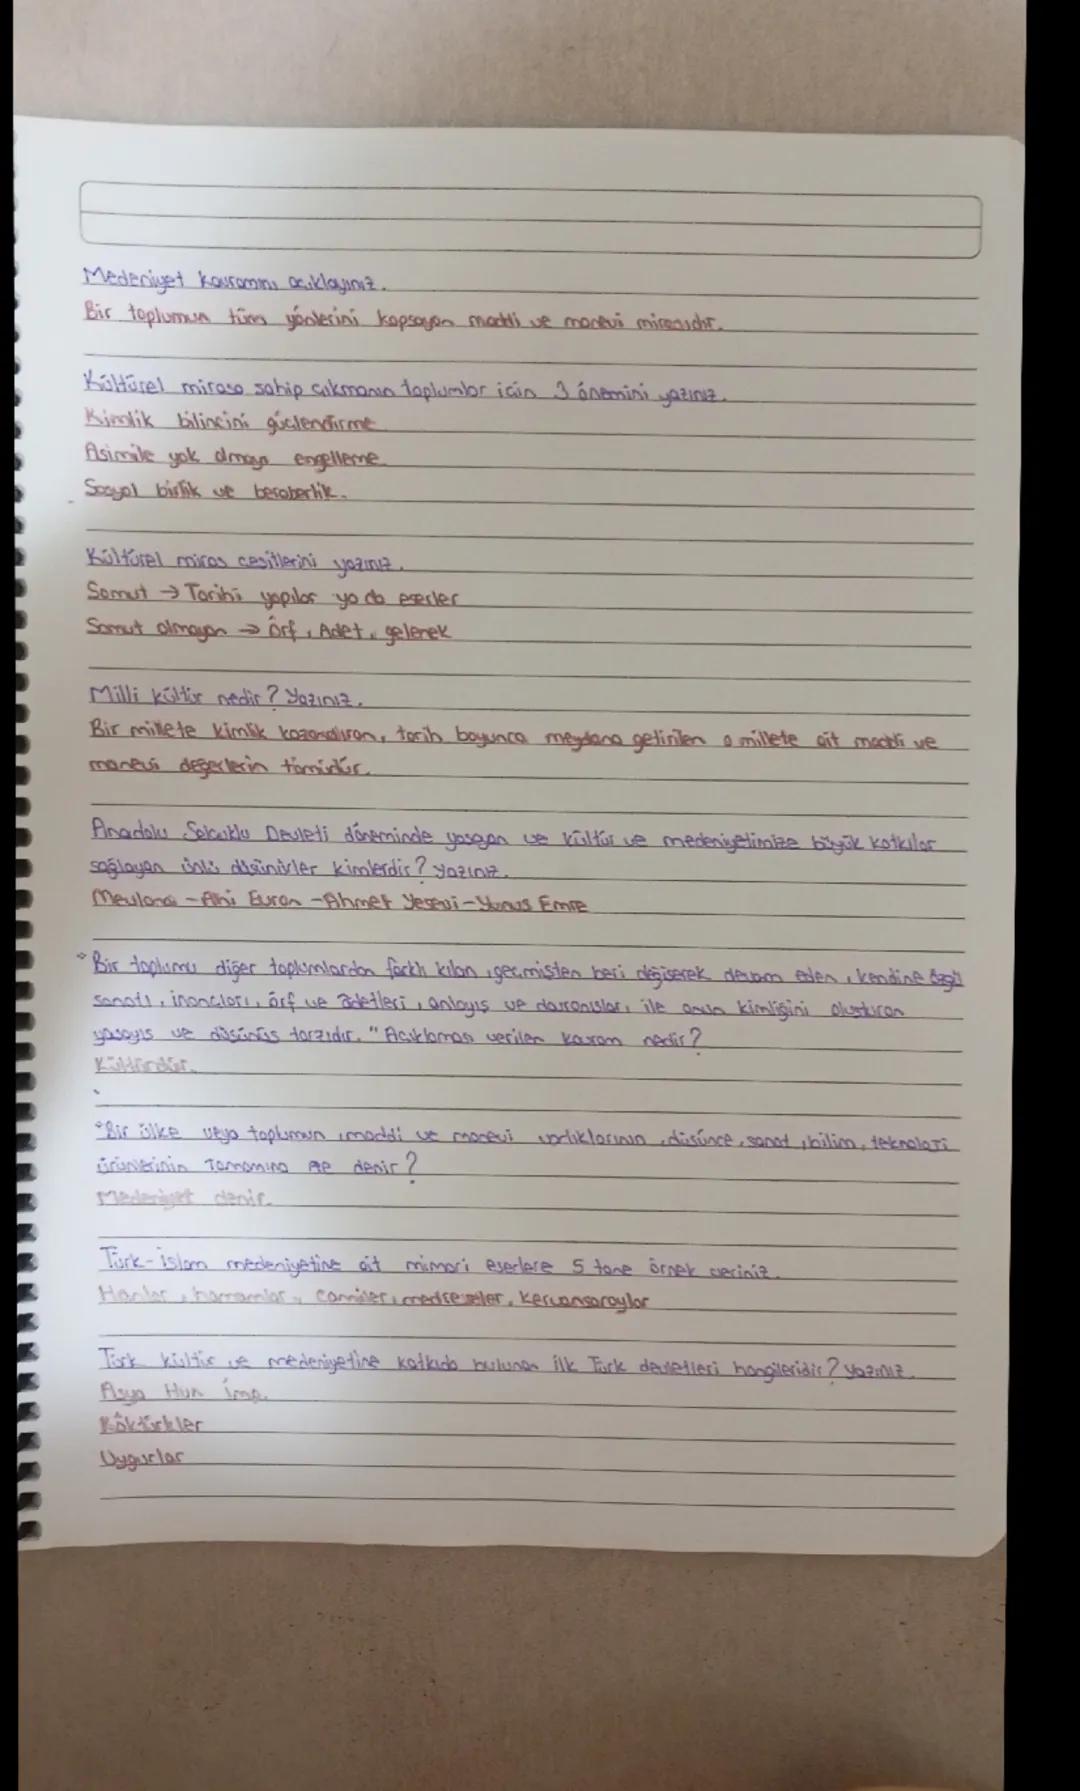 Medeniyet kavramını açıklayınız.
Bir toplumun tüm yönlerini kapsayan maddi ve manevi mirasıdır.
Kültürel mirasa sahip çıkmanın toplumlar için 3 önemini yazınız.
Kimlik bilincini güçlendirme
Asimile yok olmayı engelleme
Sosyal birlik ve beraberlik.
Kültürel miras çeşitlerini yazınız.
Somut → Tarihi yapılar ya da eserler
Somut olmayan → Örf, Adet, gelenek
Milli kültür nedir? Yazınız.
Bir millete kimlik kazandıran, tarih boyunca meydana getirilen o millete ait maddi ve
manevi değerlerin tümüdür.
Anadolu Selçuklu Devleti döneminde yaşayan ve kültür ve medeniyetimize büyük katkılar
sağlayan ünlü düşünürler kimlerdir? yazınız.
Mevlana - Ahi Evran - Ahmet Yesevi - Yunus Emre
"Bir toplumu diğer toplumlardan farklı kılan, geçmişten beri değişerek devam eden, kendine özgü
sanatı, inançları, örf ve adetleri, anlayış ve davranışları ile onun kimliğini oluşturan
yaşayış ve düşünüş tarzıdır." Açıklaması verilen kavram nedir?
Kültürdür.
"Bir ülke veya toplumun, maddi ve manevi varlıklarının, düşünce, sanat, bilim, teknoloji
ürünlerinin Tamamına ne denir?
Medeniyet denir.
Türk-İslam medeniyetine ait mimari eserlere 5 tane örnek veriniz.
Hanlar, hamamlar, camiler, medreseler, kervansaraylar
Türk kültür ve medeniyetine katkıda bulunan ilk Türk devletleri hangileridir? yazınız.
Asya Hun İmp.
Köktürkler
Uygurlar